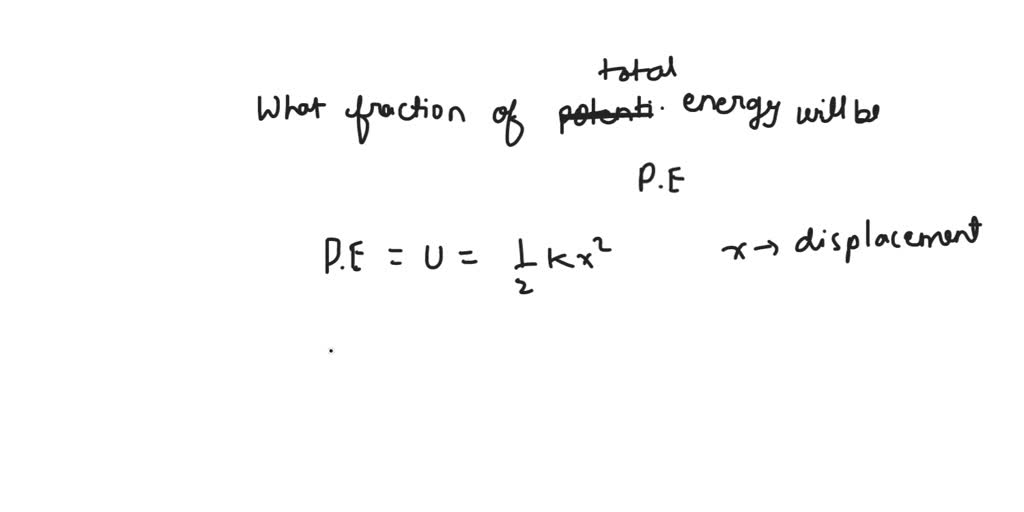 total
What fraction of potenti. energy will be
P.E
P.E = U = 1/2 kx² x → displacement